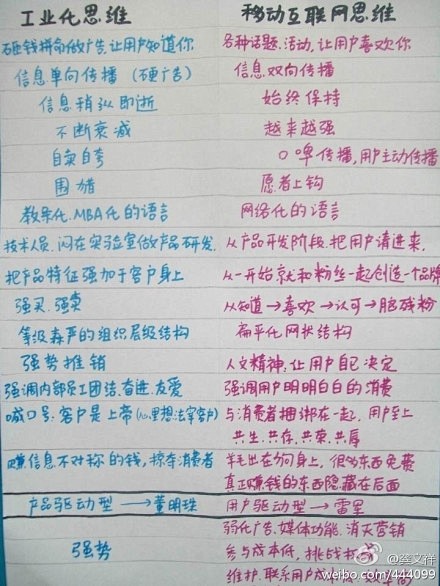 工业化思维
移动互联网思维
砸钱拼命做广告,让用户知道你
各种话题.活动,让用户喜欢你
信息单向传播(硬广告)
信息双向传播
信息稍纵即逝
始终保持
不断衰减
越来越强
自卖自夸
口啤传播,用户主动传播
围猎
愿者上钩
教条化.MBA化的语言
网络化的语言
技术人员.闷在实验室做产品研发.
从产品开发阶段.把用户请进来.
把产品特征强加于客户身上
从一开始就和粉丝一起创造一个品牌
强买.强卖
从知道→喜欢→认可→脑残粉
等级森严的组织层级结构
扁平化网状结构
强势推销
人文精神,让用户自己决定
强调内部员工团结.奋进.友爱
强调用户明明白白的消费
喊口号.客户是上帝(心里想:法宰客户)
与消费者捆绑在一起,用户至上
共生.共存.共荣.共辱
赚信息不对称的钱,掠夺消费者
羊毛出在狗身上,很多东西免费
真正赚钱的东西隐藏在后面
产品驱动型→董明珠
用户驱动型→雷军
弱化广告.媒体功能.消灭营销
强势
参与成本低,挑战
维护.联系用户成
weibo.com/444099